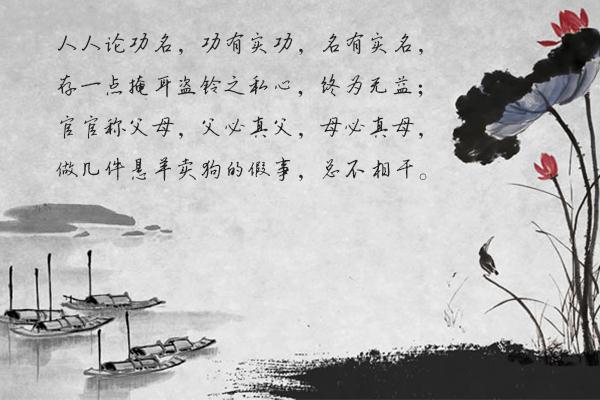 人人论功名，功有实功，名有实名，
存一点掩耳盗铃之私心，终为无益；
官官称父母，父必真父，母必真母，
做几件悬羊卖狗的假事，总不相干。